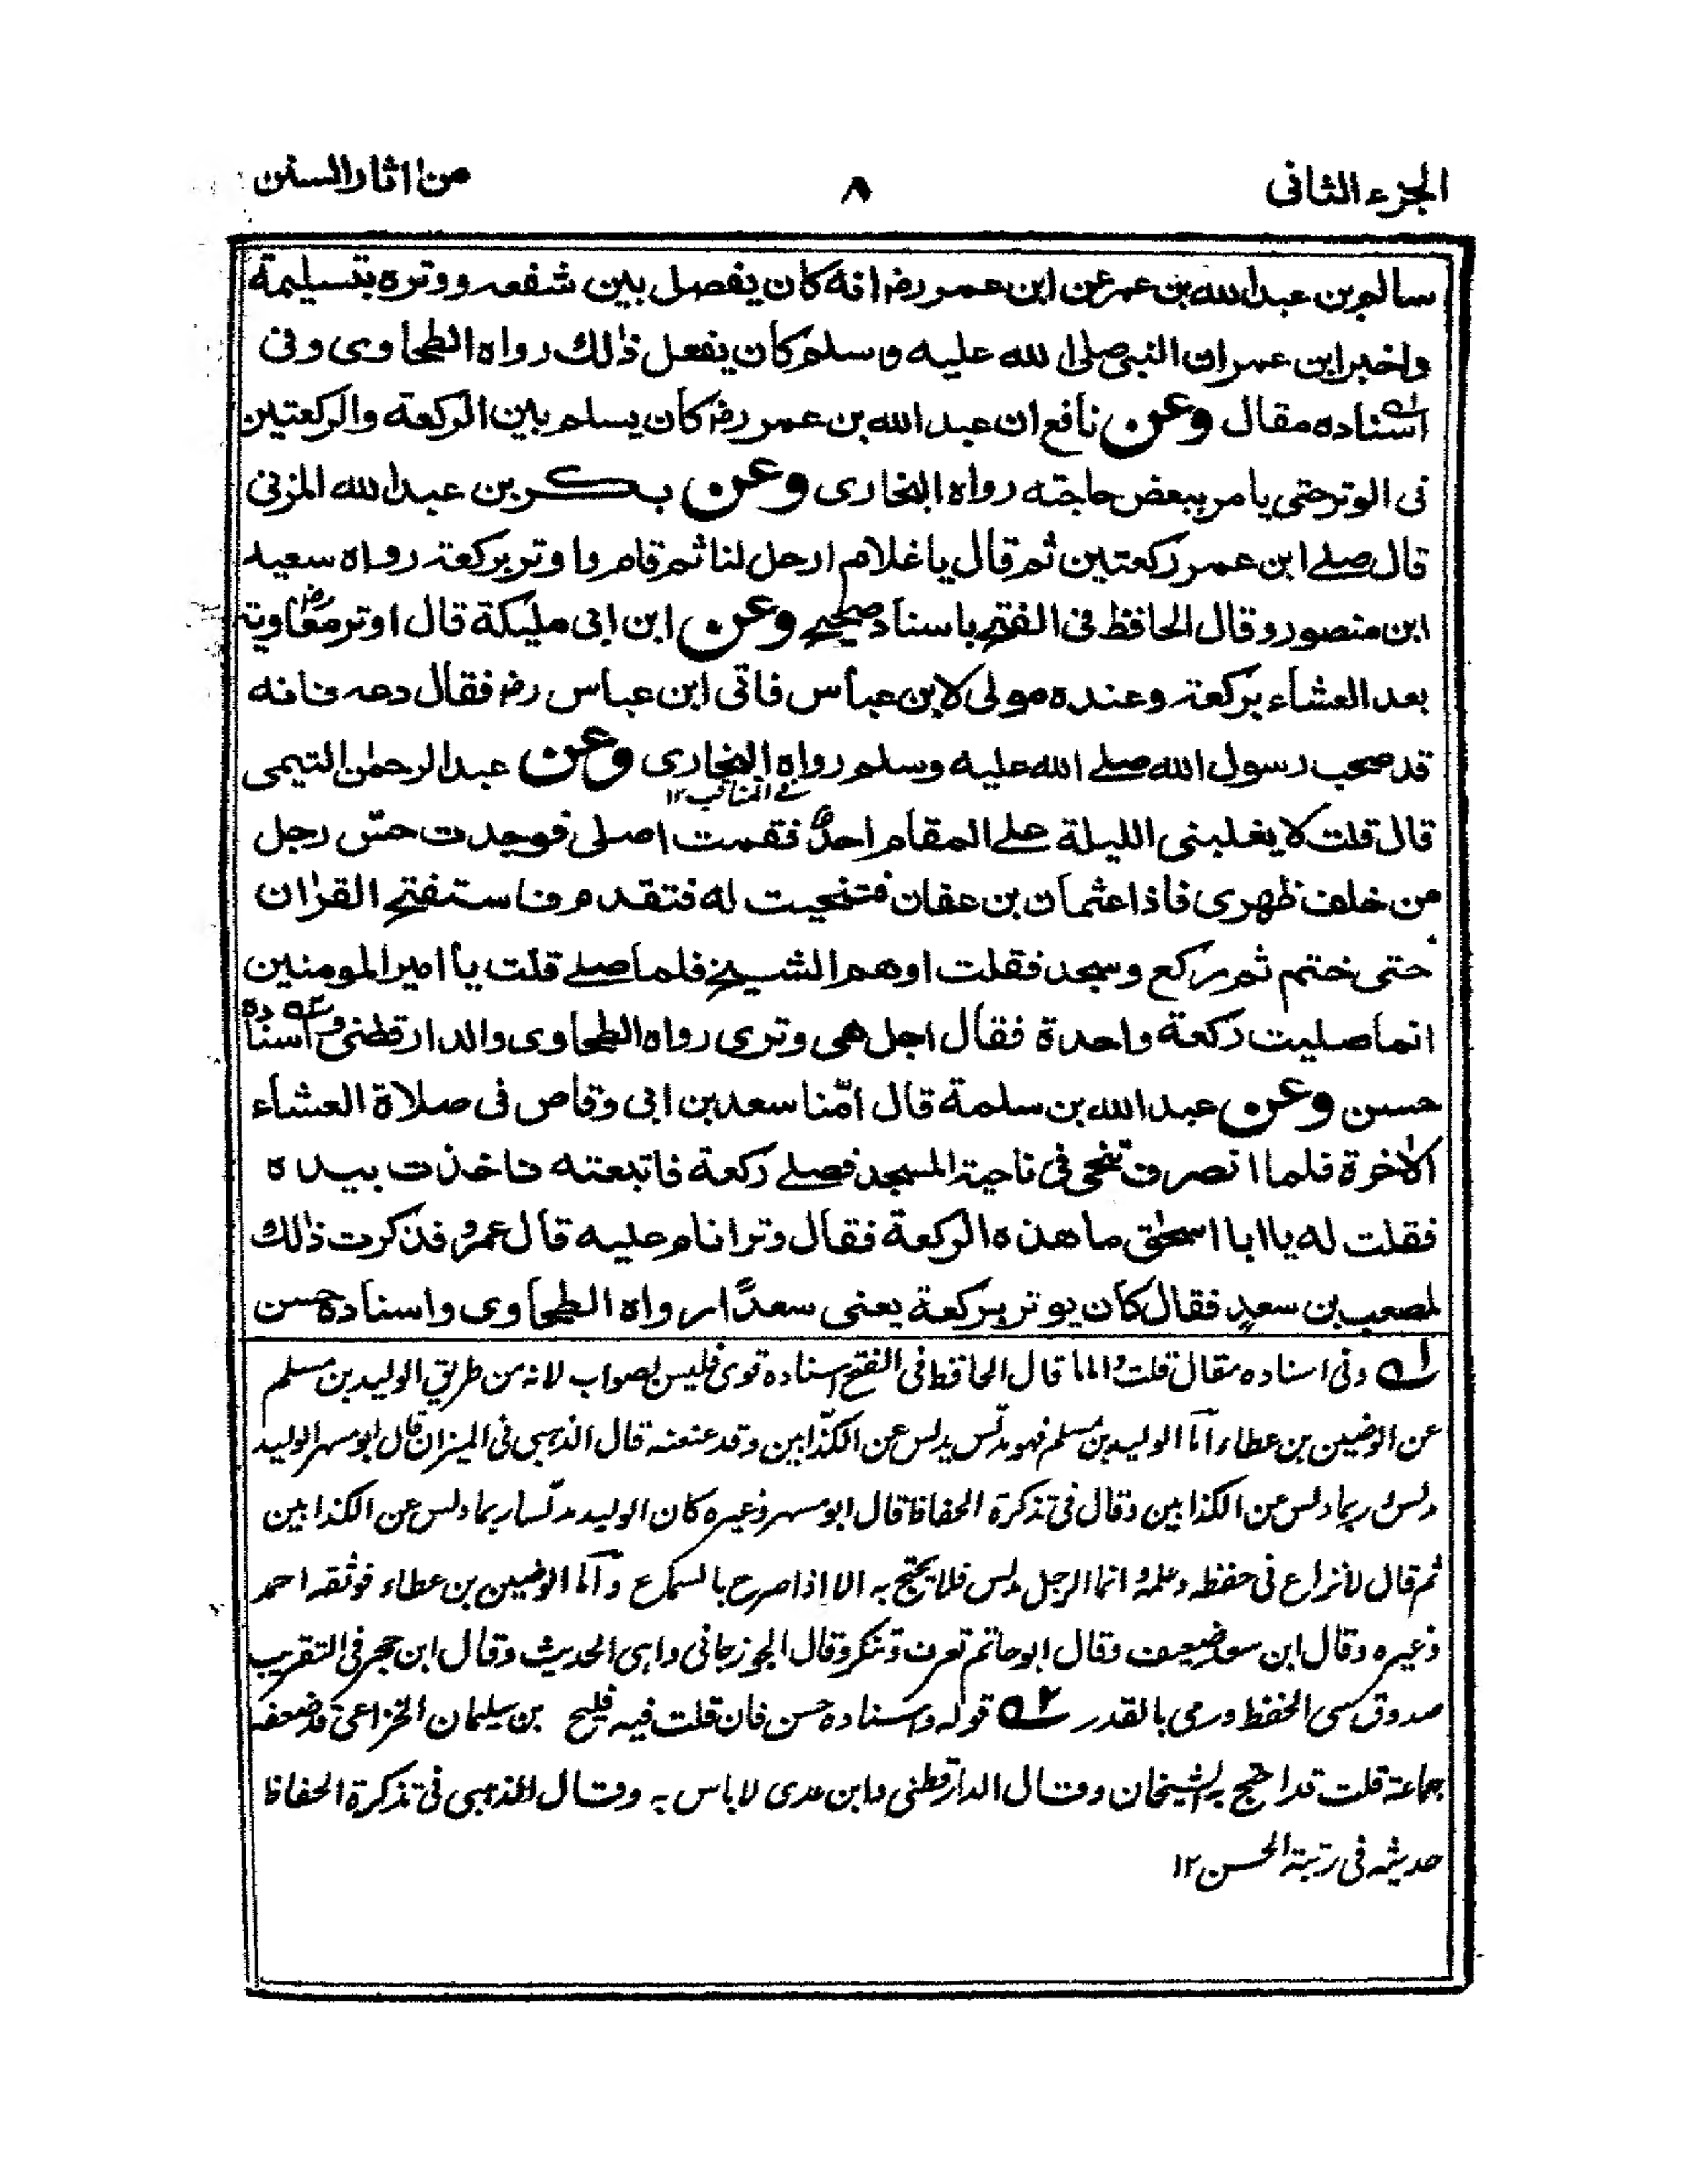 الجزء الثانى
٨
من اثار السنن
سالم بن عبد الله بن عمر عن ابن عمر رض انه كان يفصل بين شفعه ووتره بتسليمة
واخبر ابن عمر ان النبي صلى الله عليه وسلم كان يفعل ذٰلك رواه الطحاوى وفى
اسناده مقال وعن نافع ان عبد الله بن عمر رض كان يسلم بين الركعة والركعتين
فى الوتر حتى يامر ببعض حاجته رواه البخارى وعن بكر بن عبد الله المزنى
قال صلے ابن عمر ركعتين ثم قال يا غلام ارحل لنا ثم قام واوتر بركعة رواه سعيد
ابن منصور وقال الحافظ فى الفتح باسناد صحيح وعن ابن ابى مليكة قال اوتر معاوية رض
بعد العشاء بركعة وعنده مولى لابن عباس فاتى ابن عباس رض فقال دعه فانه
قد صحب رسول الله صلے الله عليه وسلم رواه البخارى وعن عبد الرحمٰن التيمى
فے المناقب ١٢
قال قلت لا يغلبنى الليلة علے المقام احد فقمت اصلى فوجدت حسّ رجل
من خلف ظهرى فاذا عثمان بن عفان فتنحيت له فتقدم فاستفتح القرٰان
حتى ختم ثم ركع وسجد فقلت اوهم الشيخ فلما صلے قلت يا امير المومنين
انما صليت ركعة واحدة فقال اجل هى وترى رواه الطحاوى والدارقطنى واسناده
حسن وعن عبد الله بن سلمة قال امّنا سعد بن ابى وقاص فى صلاة العشاء
الاٰخرة فلما انصرف تنحى فى ناحية المسجد فصلے ركعة فاتبعته فاخذت بيده
فقلت له يا ابا اسحٰق ما هذه الركعة فقال وتر انام عليه قال عمرو فذكرت ذٰلك
لمصعب بن سعد فقال كان يوتر بركعة يعنى سعدًا رواه الطحاوى واسناده حسن
١ وفى اسناده مقال قلت واما ما قال الحافظ فى الفتح اسناده قوى فليس بصواب لانه من طريق الوليد بن مسلم
عن الوضين بن عطاء امّا الوليد بن مسلم فهو مدلّس يدلس عن الكذّابين وقد عنعنه قال الذهبى فى الميزان قال ابو مسهر الوليد
مدلس ربما دلس عن الكذابين وقال فى تذكرة الحفاظ قال ابو مسهر وغيره كان الوليد مدلّسا ربما دلس عن الكذابين
ثم قال لا نزاع فى حفظه وعلمه انما الرجل مدلس فلا يحتج به الا اذا صرح بالسماع وامّا الوضين بن عطاء فوثقه احمد
وغيره وقال ابن سعد ضعيف وقال ابو حاتم تعرف وتنكر وقال الجوزجانى واهى الحديث وقال ابن حجر فى التقريب
صدوق سئ الحفظ ورمى بالقدر ٢ قوله واسناده حسن فان قلت فيه فليح بن سليمان الخزاعى قد ضعفه
جماعة قلت قد احتج به الشيخان وقال الدارقطنى وابن عدى لا باس به وقال الذهبى فى تذكرة الحفاظ
حديثه فى رتبة الحسن ١٢